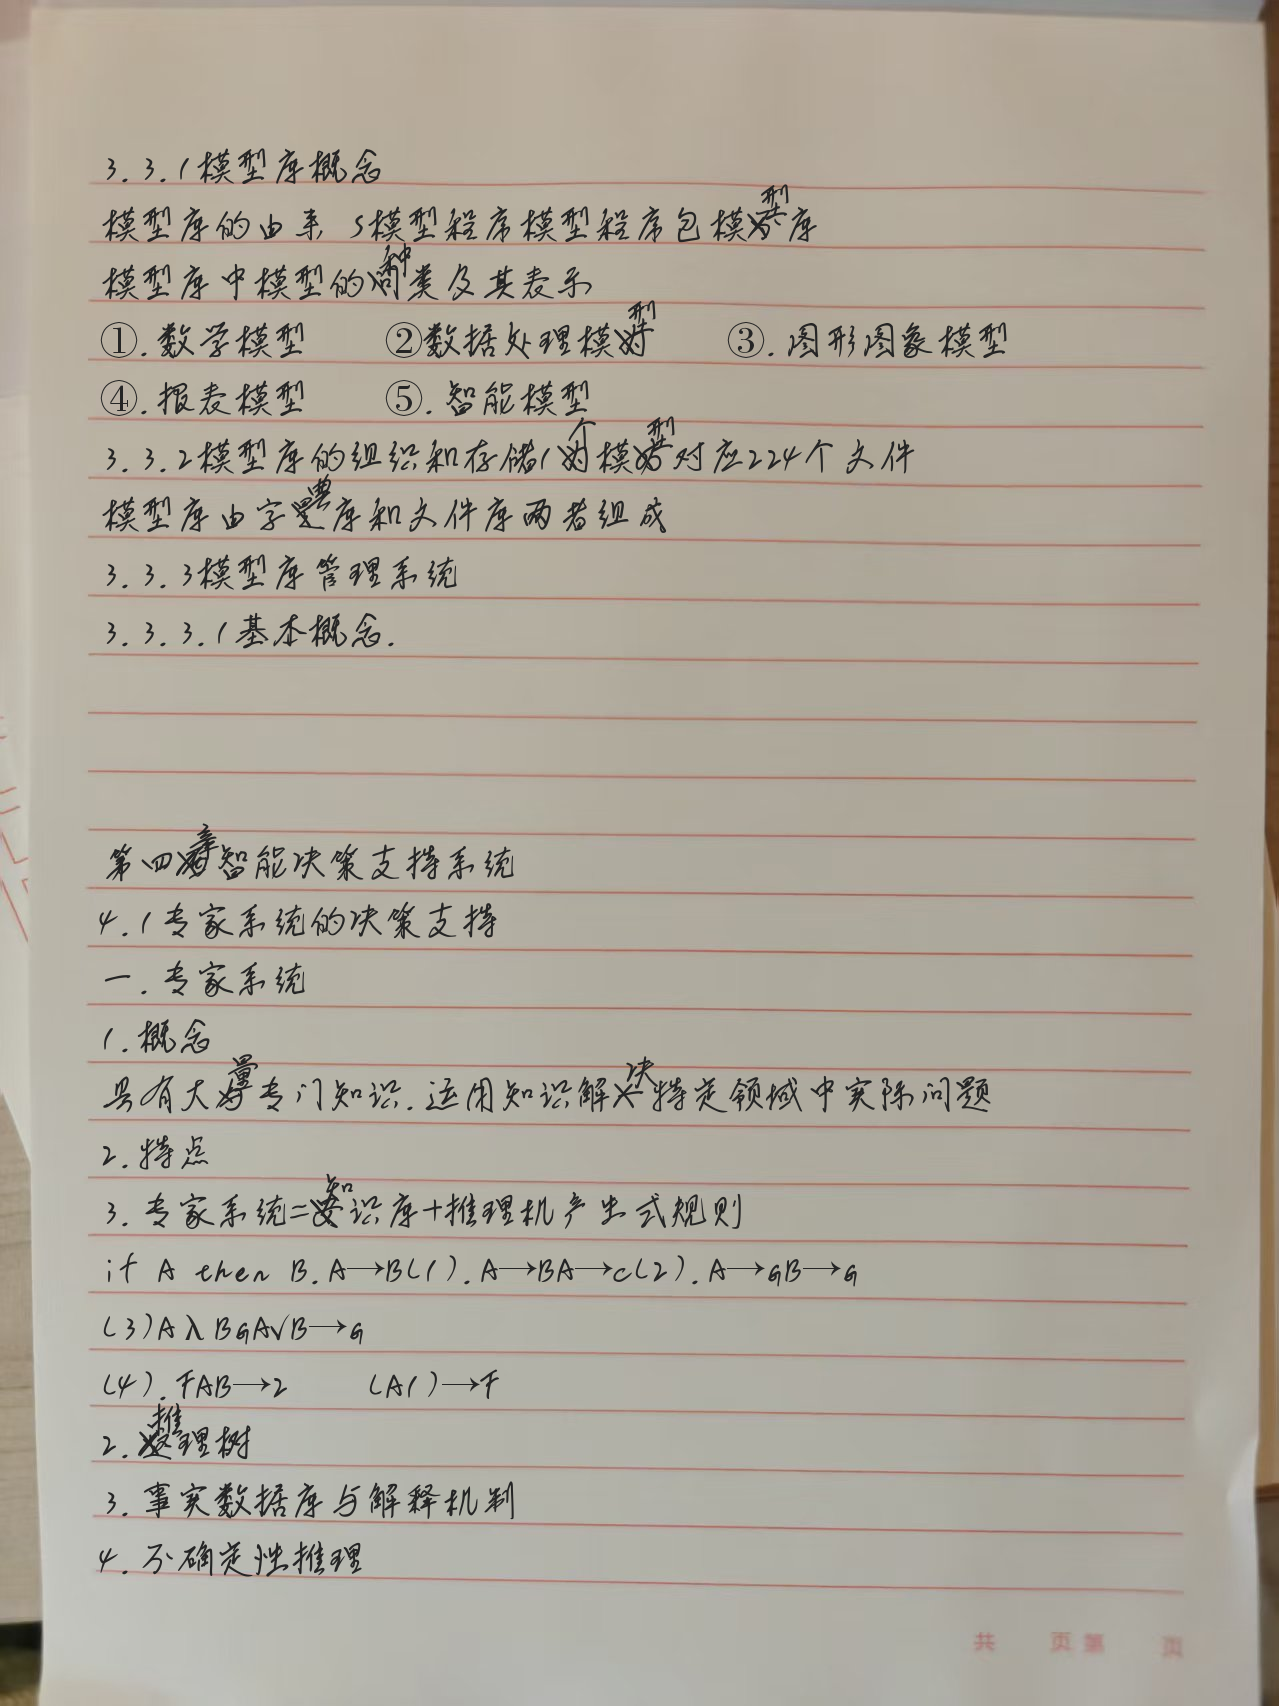 3.3.1模型库概念
模型库的由来 5模型程序模型程序包模型库
模型库中模型的种类及其表示
①.数学模型 ②数据处理模型 ③.图形图象模型
④.报表模型 ⑤.智能模型
3.3.2模型库的组织和存储1个模型对应224个文件
模型库由字典库和文件库两者组成
3.3.3模型库管理系统
3.3.3.1基本概念.
第四章智能决策支持系统
4.1专家系统的决策支持
一.专家系统
1.概念
具有大量专门知识.运用知识解决特定领域中实际问题
2.特点
3.专家系统=知识库+推理机产生式规则
if A then B.A→B(1).A→BA→c(2).A→GB→G
(3)AλBGA√B→G
(4).FAB→2 (A1)→F
2.推理树
3.事实数据库与解释机制
4.不确定性推理
共 页 第 页